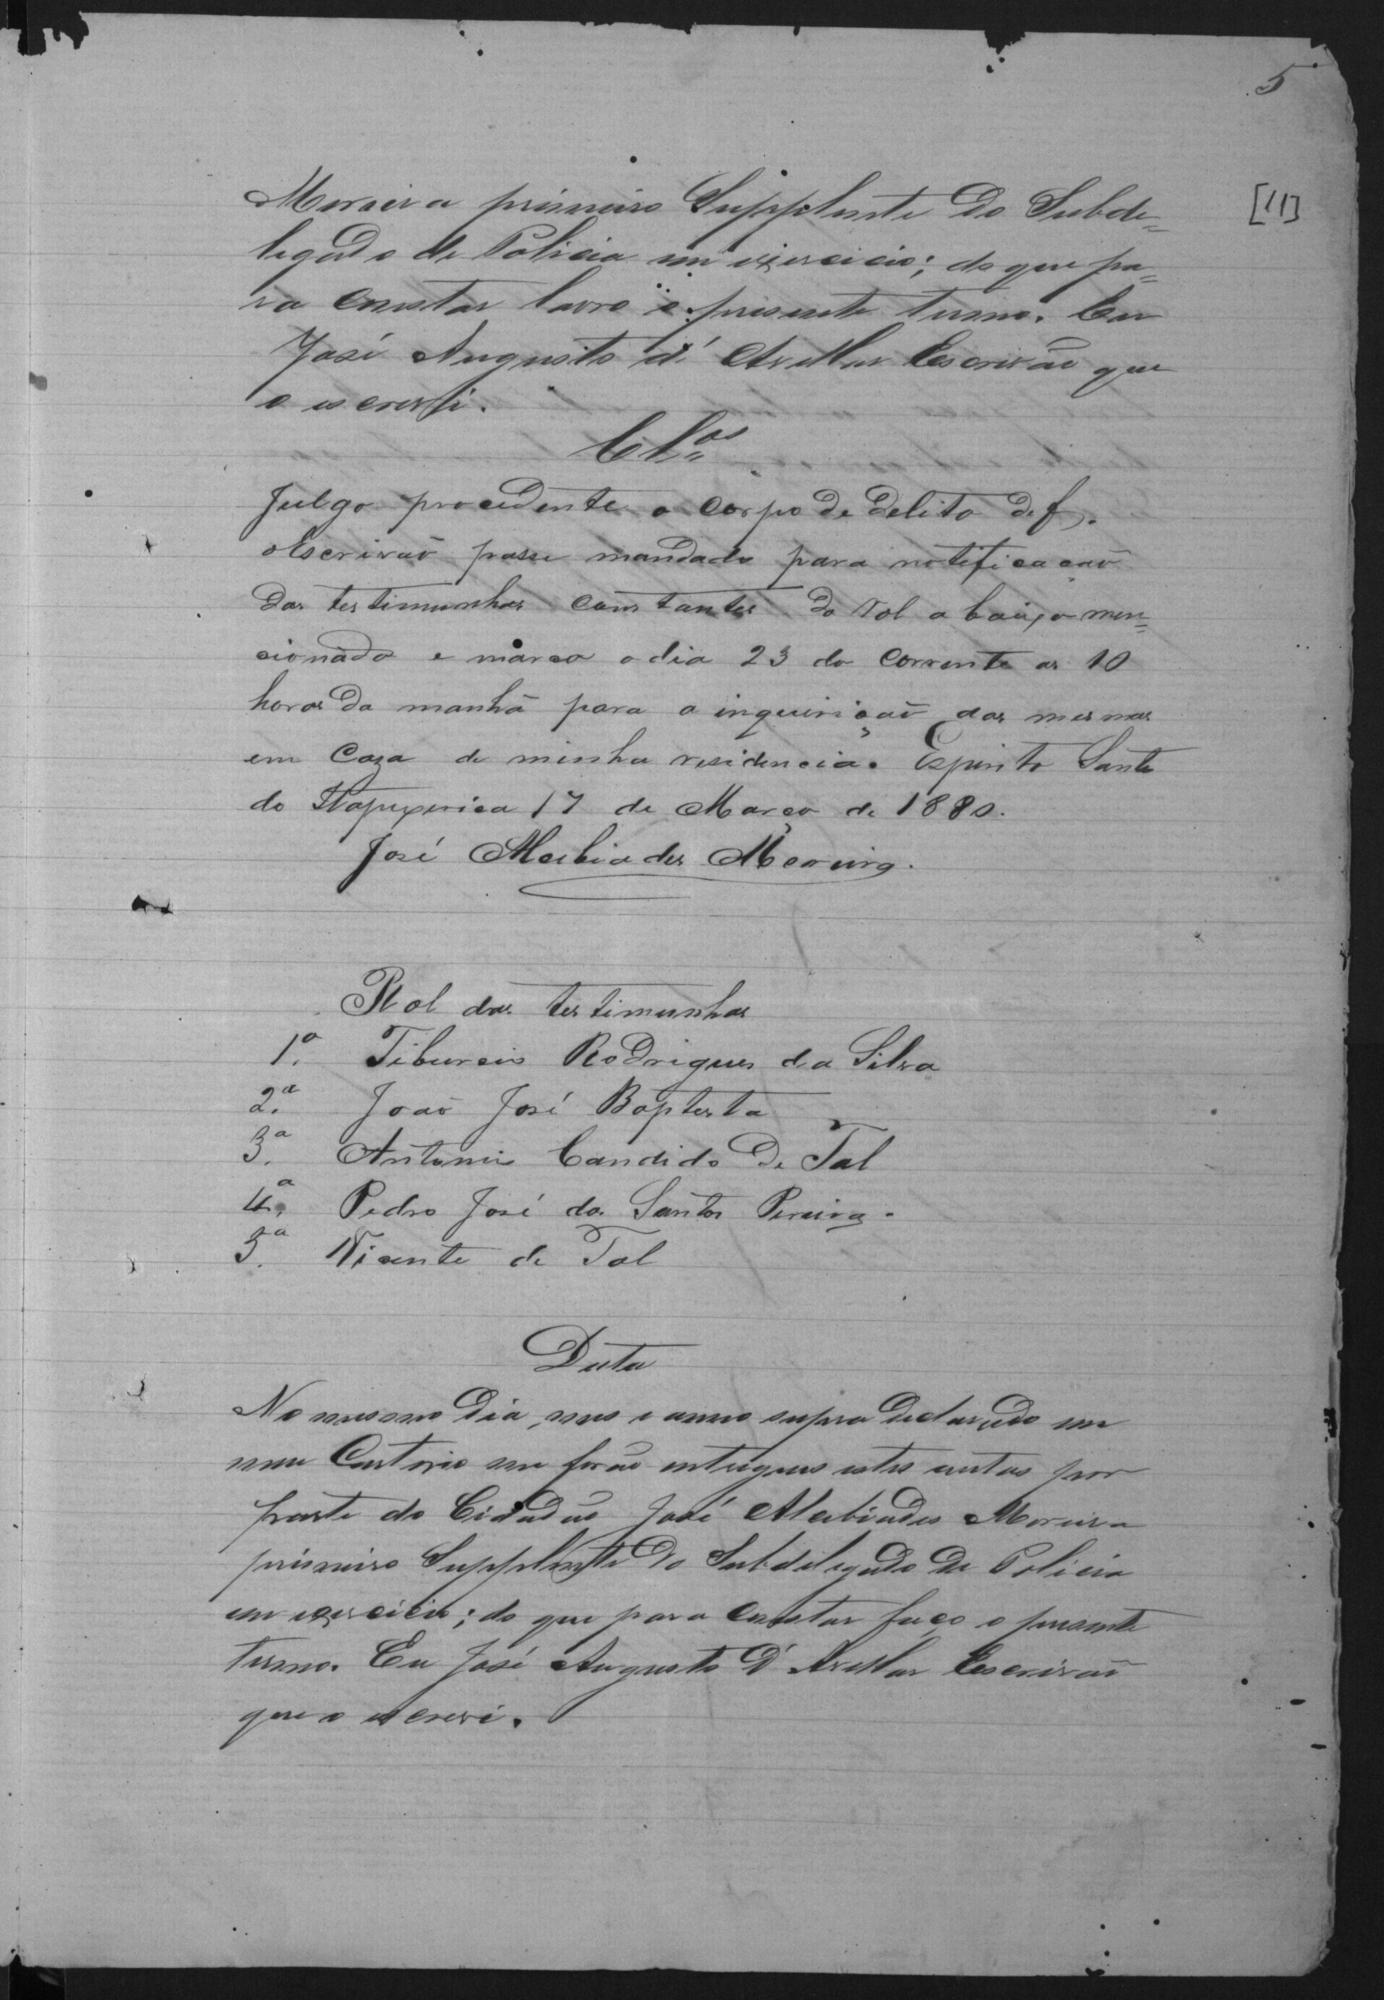 5
[11]
Moreira primeiro Supplente do Subde=
legado de Policia em exercicio; do que pa=
ra constar lavro o presente termo. Eu
José Augusto d'Avellar Escrivão que
o escrevi.
Cl.os
Julgo procedente o corpo de delito de f.
o Escrivaõ passe mandado para notificaçaõ
das testimunhas constantes do rol abaixo men=
cionado e marco o dia 23 do corrente as 10
horas da manhã para a inquiriçaõ das mesmas
em caza de minha residencia. Espirito Santo
do Itapyxerica 17 de Março de 1880.
José Alcibiades Moreira.
Rol das testimunhas
1.ª Tiburcio Rodrigues da Silva
2.ª Joaõ José Baptista
3.ª Antonio Candido de Tal
4.ª Pedro José dos Santos Pereira.
5.ª Vicente de Tal
Data
No mesmo dia, mes e anno supra declarado em
meu Cartorio me forão entregues estes autos por
parte do Cidadão José Alcibiades Moreira
primeiro Supplente do Subdelegado de Policia
em exercicio; do que para constar faço o presente
termo. Eu José Augusto d'Avellar Escrivaõ
que o escrevi.